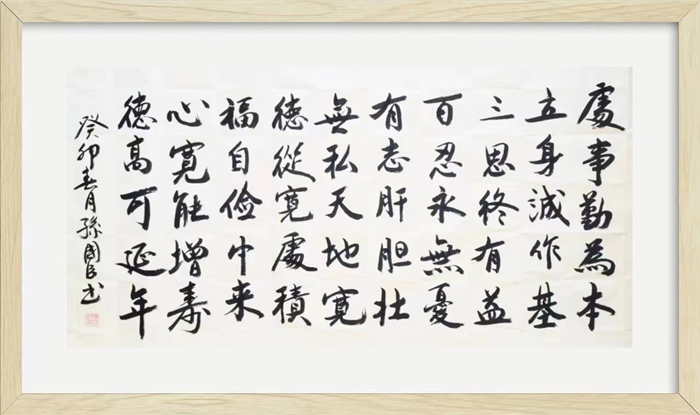 處事勤為本
立身誠作基
三思終有益
百忍永無憂
有志肝胆壮
無私天地寬
德從寬處積
福自俭中来
心寬能增寿
德高可延年
癸卯春月孫國良书